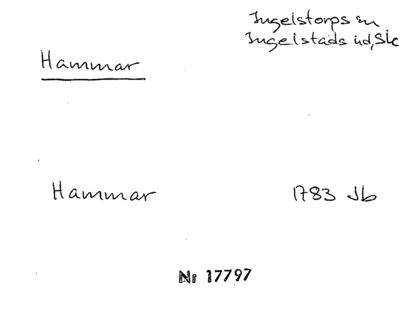 Ingelstorps sn
Ingelstads hd, Sk
Hammar
Hammar 1783 Jb
Nr 17797